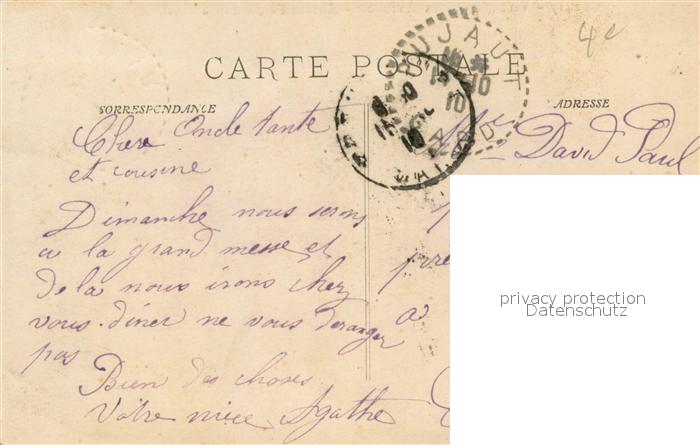 4e
CARTE POSTALE
CORRESPONDANCE
ADRESSE
PUJAUT
10
GARD
Chere Oncle tante
et cousine
Dimanche nous serons
a la grand messe et
de la nous irons chez
vous. diner ne vous deranger
pas
Bien des choses
Votre niece Agathe
David Paul
pré
a
privacy protection
Datenschutz